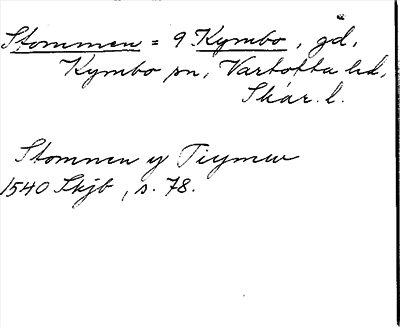 Stommen = 9 Kymbo, gd,
Kymbo sn, Vartofta hd,
Skar. l.
Stommen y Tiymew
1540 Skjb, s. 78.